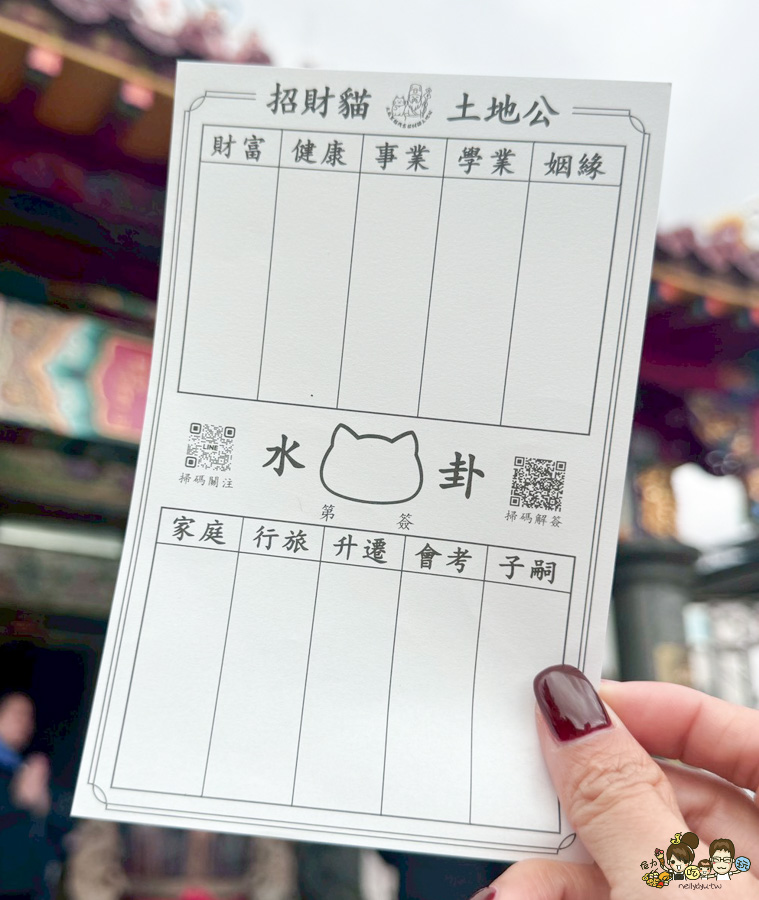 招財貓 土地公
財富 健康 事業 學業 姻緣
LINE
水 卦
掃碼關注 掃碼解簽
第 簽
家庭 行旅 升遷 會考 子嗣
吃 玩
neilyoyu.tw